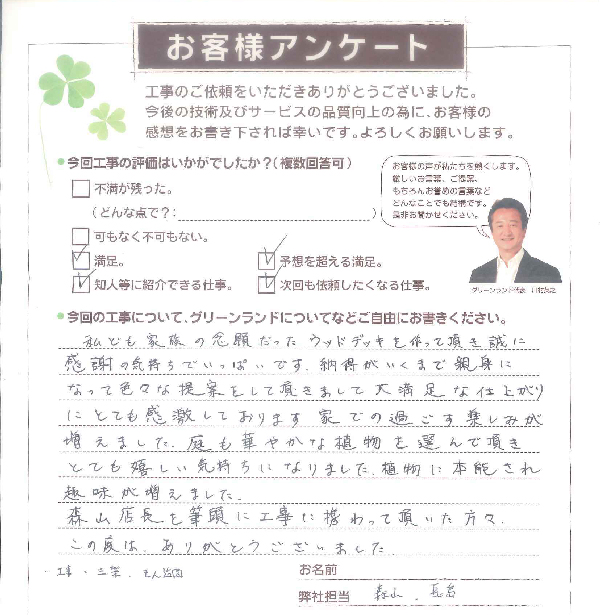 お客様アンケート
工事のご依頼をいただきありがとうございました。
今後の技術及びサービスの品質向上の為に、お客様の
感想をお書き下されば幸いです。よろしくお願いします。
●今回工事の評価はいかがでしたか?(複数回答可)
お客様の声が私たちを熱くします。
厳しいお言葉、ご提案、
もちろんお誉めの言葉など
どんなことでも結構です。
是非お聞かせください。
不満が残った。
(どんな点で?: )
可もなく不可もない。
満足。
予想を超える満足。
知人等に紹介できる仕事。
次回も依頼したくなる仕事。
グリーンランド代表
●今回の工事について、グリーンランドについてなどご自由にお書きください。
私ども家族の念願だったウッドデッキを作って頂き誠に
感謝の気持ちでいっぱいです。納得がいくまで親身に
なって色々な提案をして頂きまして大満足な仕上がり
にとても感激しております 家での過ごす楽しみが
増えました。庭も華やかな植物を選んで頂き
とても嬉しい気持ちになりました。植物に本能され
趣味が増えました。
森山店長を筆頭に工事に携わって頂いた方々、
この度は、ありがとうございました
・工事・三栄、
お名前
弊社担当 森山、長倉